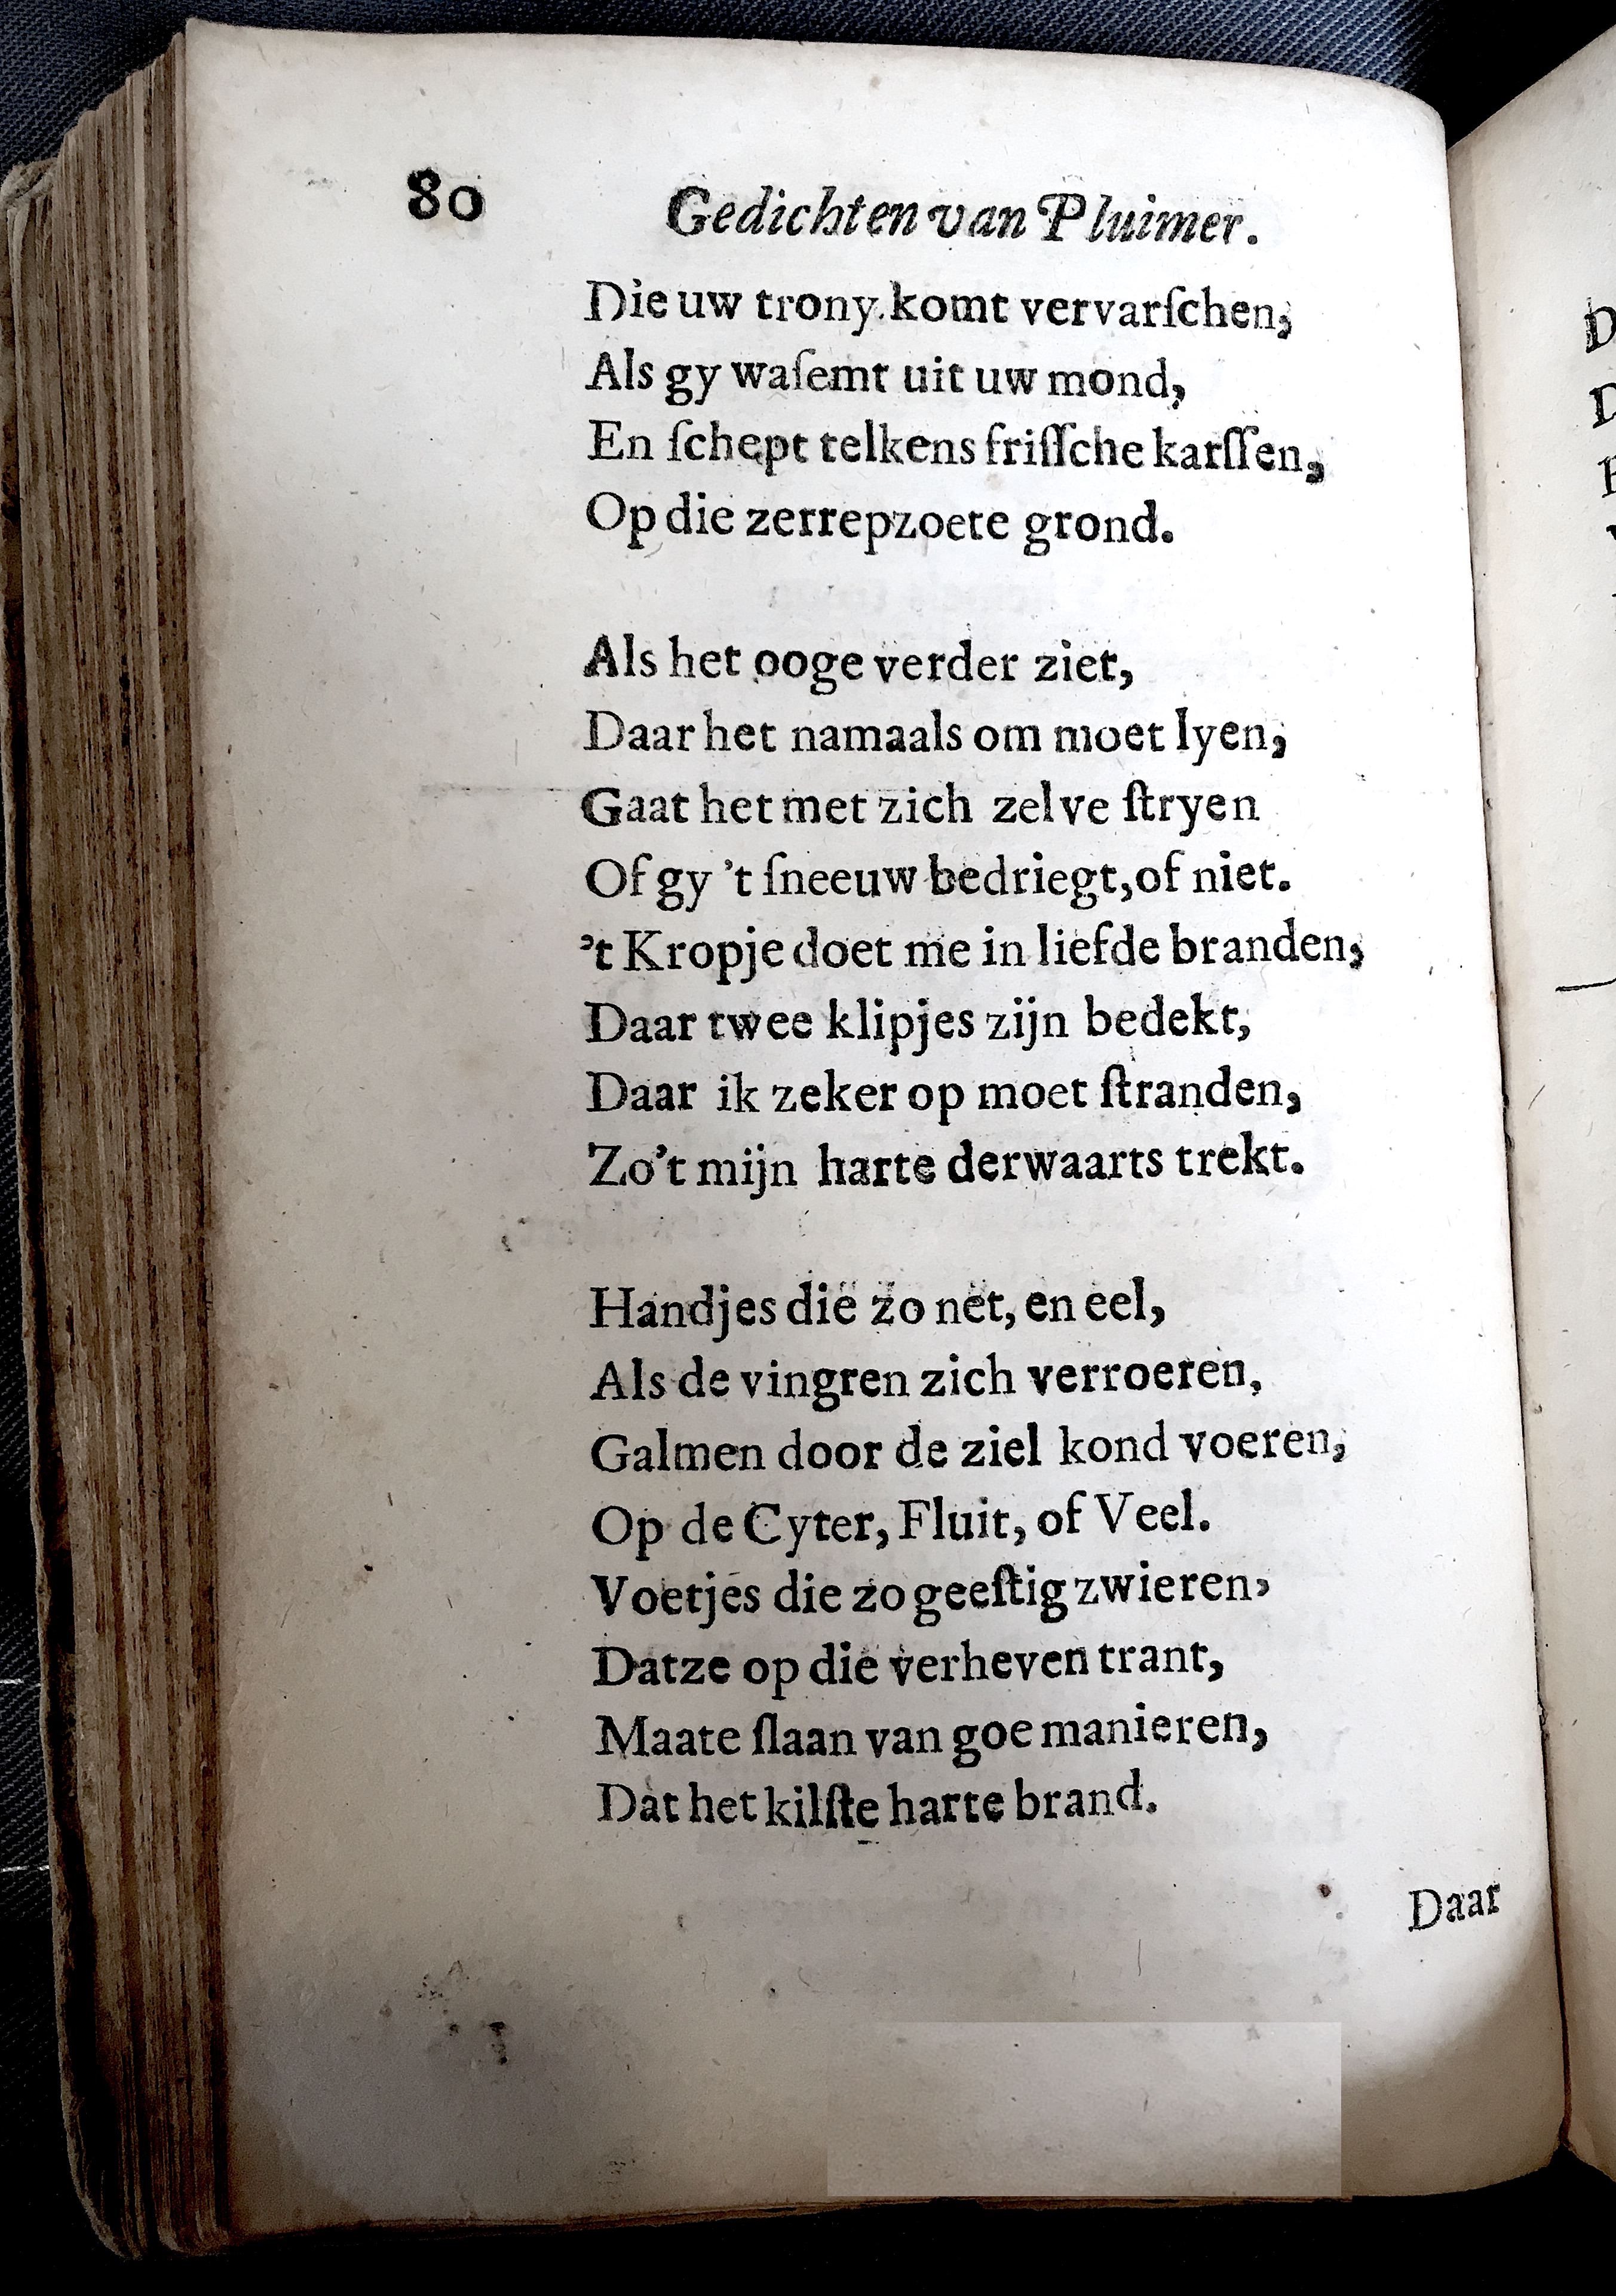 80 Gedichten van Pluimer.
Die uw trony komt vervarſchen,
Als gy waſemt uit uw mond,
En ſchept telkens friſſche karſſen,
Op die zerrepzoete grond.
Als het ooge verder ziet,
Daar het namaals om moet lyen,
Gaat het met zich zelve ſtryen
Of gy 't ſneeuw bedriegt, of niet.
't Kropje doet me in liefde branden,
Daar twee klipjes zijn bedekt,
Daar ik zeker op moet ſtranden,
Zo't mijn harte derwaarts trekt.
Handjes die zo net, en eel,
Als de vingren zich verroeren,
Galmen door de ziel kond voeren,
Op de Cyter, Fluit, of Veel.
Voetjes die zo geeſtig zwieren,
Datze op die verheven trant,
Maate ſlaan van goe manieren,
Dat het kilſte harte brand.
Daar